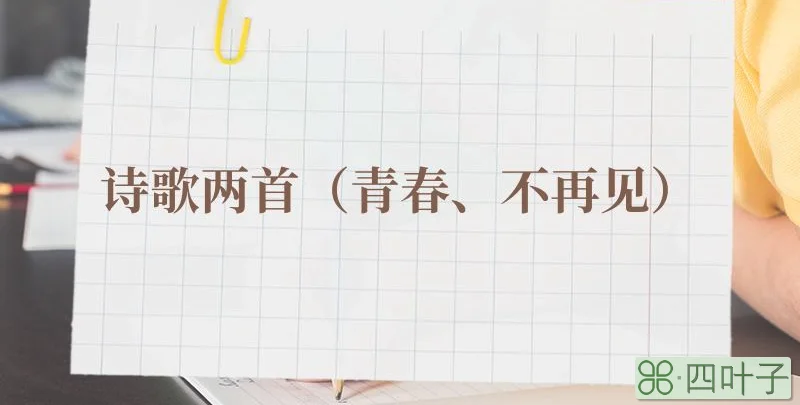 诗歌两首（青春、不再见）
四叶子